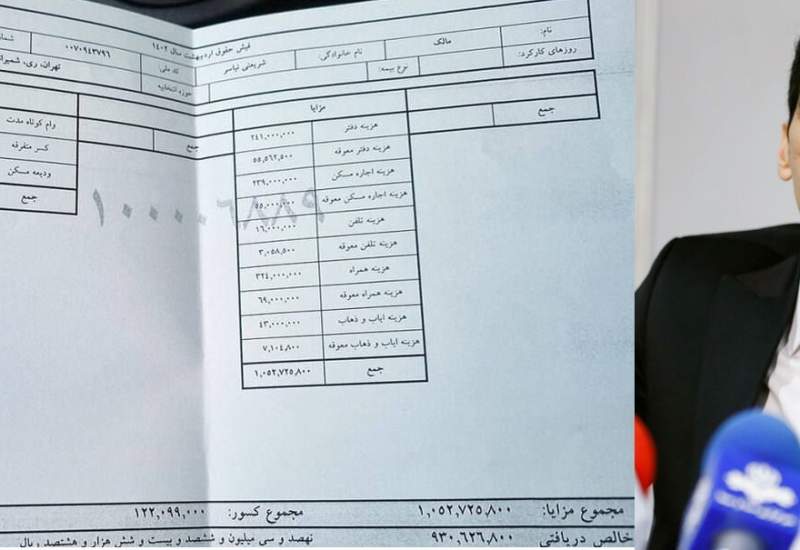 فیش حقوق اردیبهشت سال ۱۴۰۲
نام: مالک نام خانوادگی: شریعتی نیاسر کد ملی: ۰۰۷۰۹۴۳۷۹۶ شماره
روزهای کارکرد: نوع بیمه: حوزه انتخابیه تهران، ری، شمیرانات
مزایا
جمع جمع
هزینه دفتر ۲۴۱,۰۰۰,۰۰۰
هزینه دفتر معوقه ۵۵,۵۶۲,۵۰۰
هزینه اجاره مسکن ۲۳۹,۰۰۰,۰۰۰
هزینه اجاره مسکن معوقه ۵۵,۰۰۰,۰۰۰
هزینه تلفن ۱۶,۰۰۰,۰۰۰
هزینه تلفن معوقه ۳,۰۵۸,۵۰۰
هزینه همراه ۳۲۴,۰۰۰,۰۰۰
هزینه همراه معوقه ۶۹,۰۰۰,۰۰۰
هزینه ایاب و ذهاب ۴۳,۰۰۰,۰۰۰
هزینه ایاب و ذهاب معوقه ۷,۱۰۴,۸۰۰
جمع ۱,۰۵۲,۷۲۵,۸۰۰
وام کوتاه مدت
کسر متفرقه
ودیعه مسکن
جمع
مجموع مزایا: ۱,۰۵۲,۷۲۵,۸۰۰ مجموع کسور: ۱۲۲,۰۹۹,۰۰۰
خالص دریافتی ۹۳۰,۶۲۶,۸۰۰ نهصد و سی میلیون و ششصد و بیست و شش هزار و هشتصد ریال